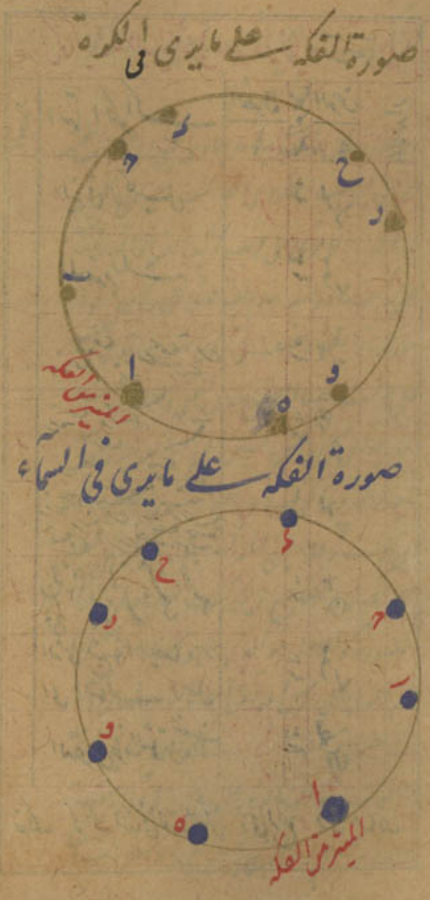 صورة الفكه على ما يرى فى الكرة
ء
ح
ح
د
ب
ا
و
ه
المنير من الفكه
صورة الفكه على ما يرى فى السماء
ء
ح
ح
د
ب
و
ا
ه
المنير من الفكه